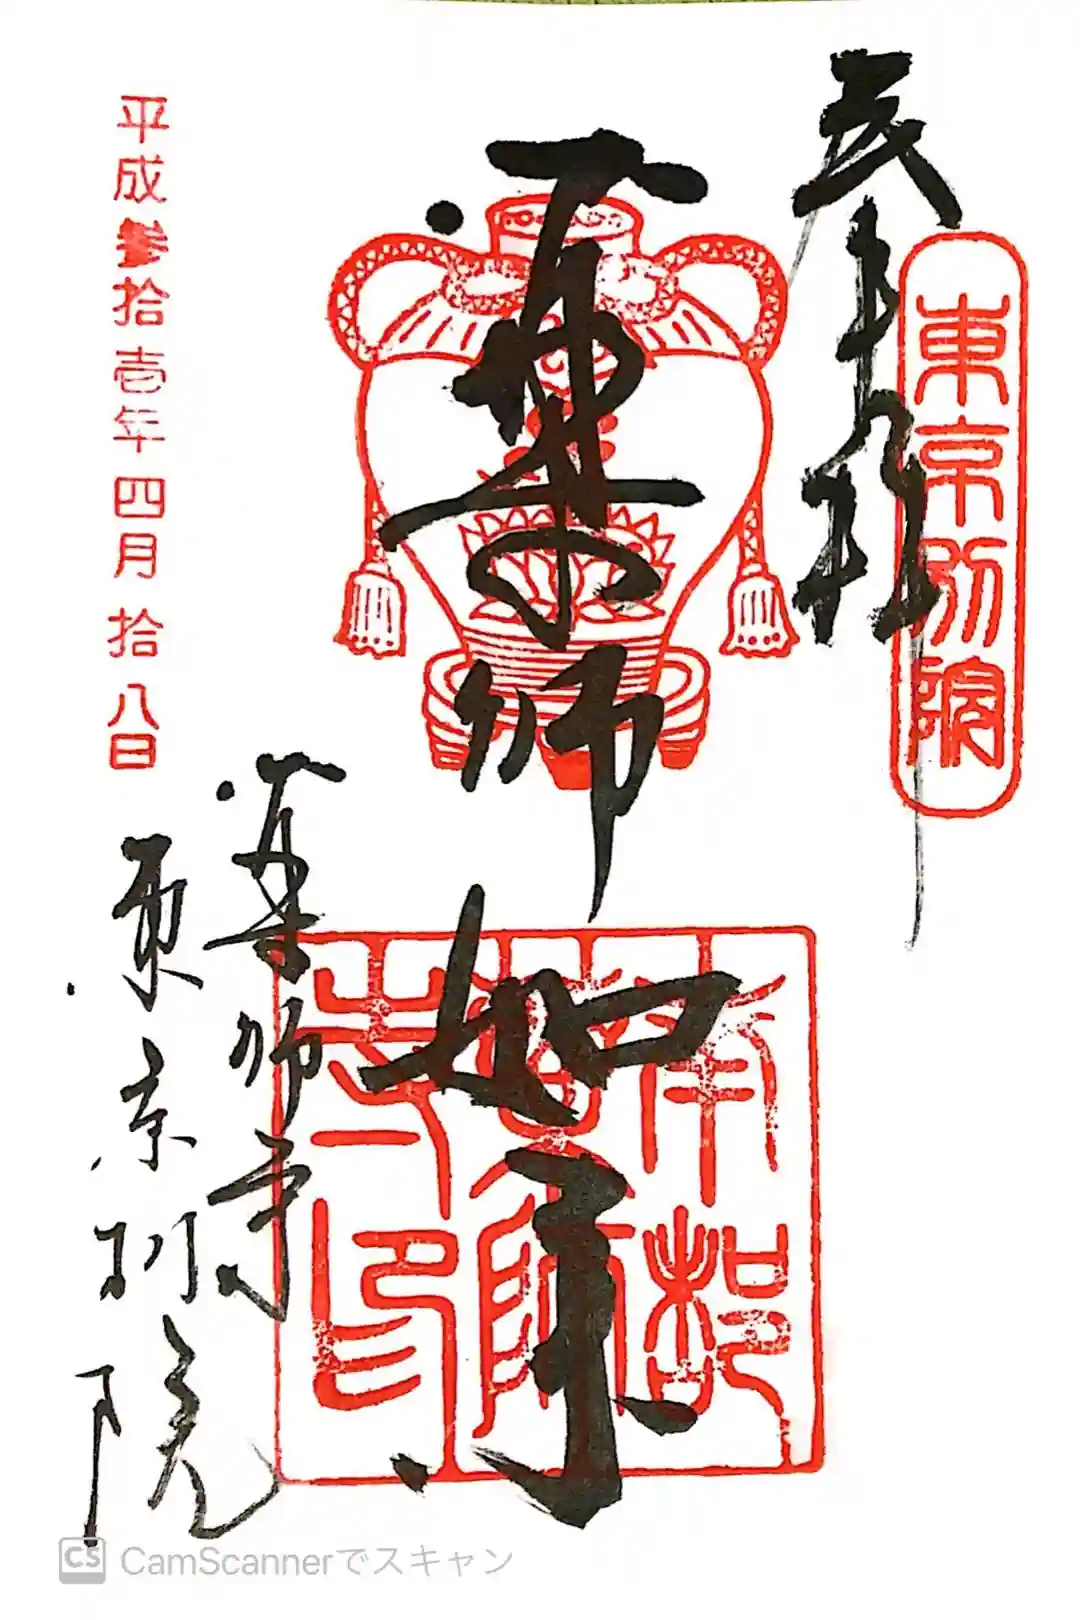 奉拝
東京別院
薬師如来
南都薬師寺印
平成参拾壱年四月拾八日
薬師寺
東京別院
CamScannerでスキャン